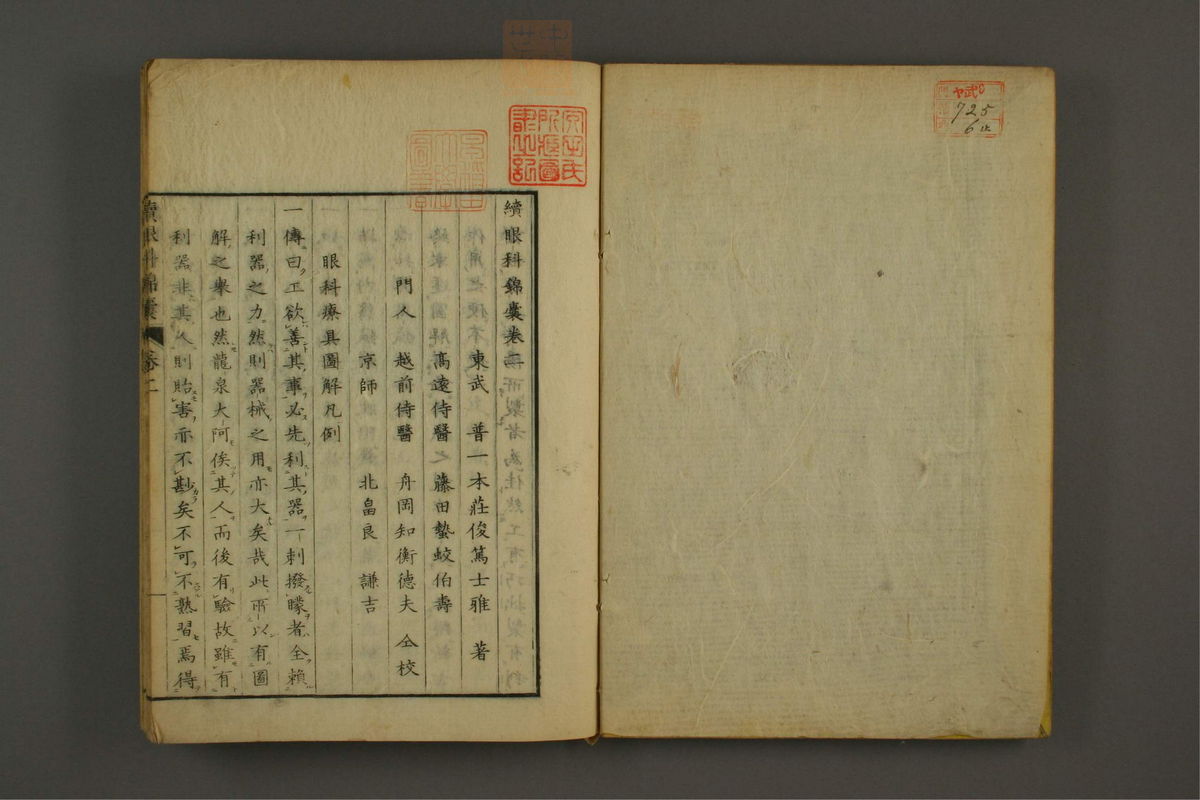 續眼科錦囊卷二
東武 普一本莊俊篤士雅 著
髙遠侍醫 藤田蟄蛟伯壽
門人 越前侍醫 舟岡知衡德夫 仝校
京師 北畠良 謙吉
眼科療具圖解凡例
一傳曰工欲善其事必先利其器一刺撥矇者全賴
利器之力然則器械之用亦大矣哉此所以有圖
解之舉也然龍泉大阿俟其人而後有驗故雖有
利器非其人則貽害亦不尠矣不可不熟習焉得
續眼科錦囊 卷二 一
725
6止